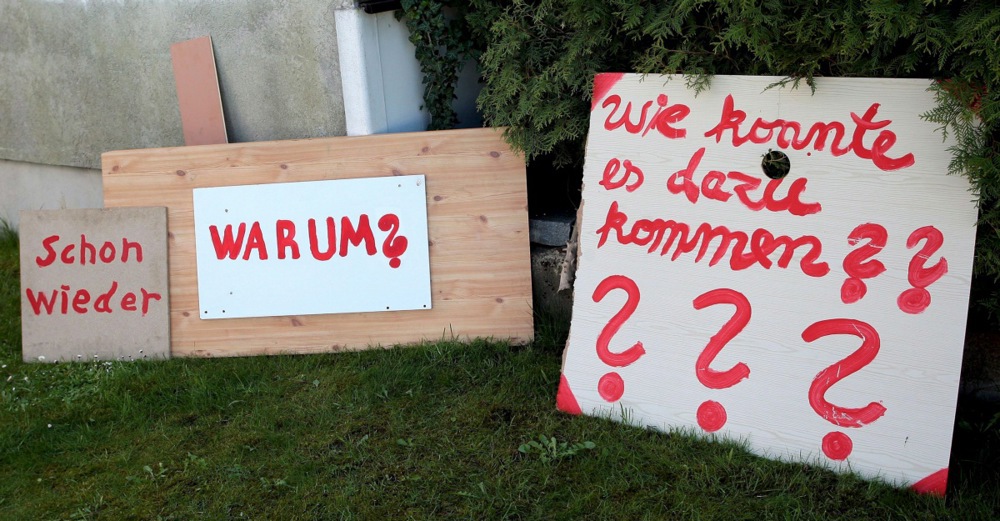 Schon
wieder
WARUM?
Wie konnte
es dazu
kommen??
???